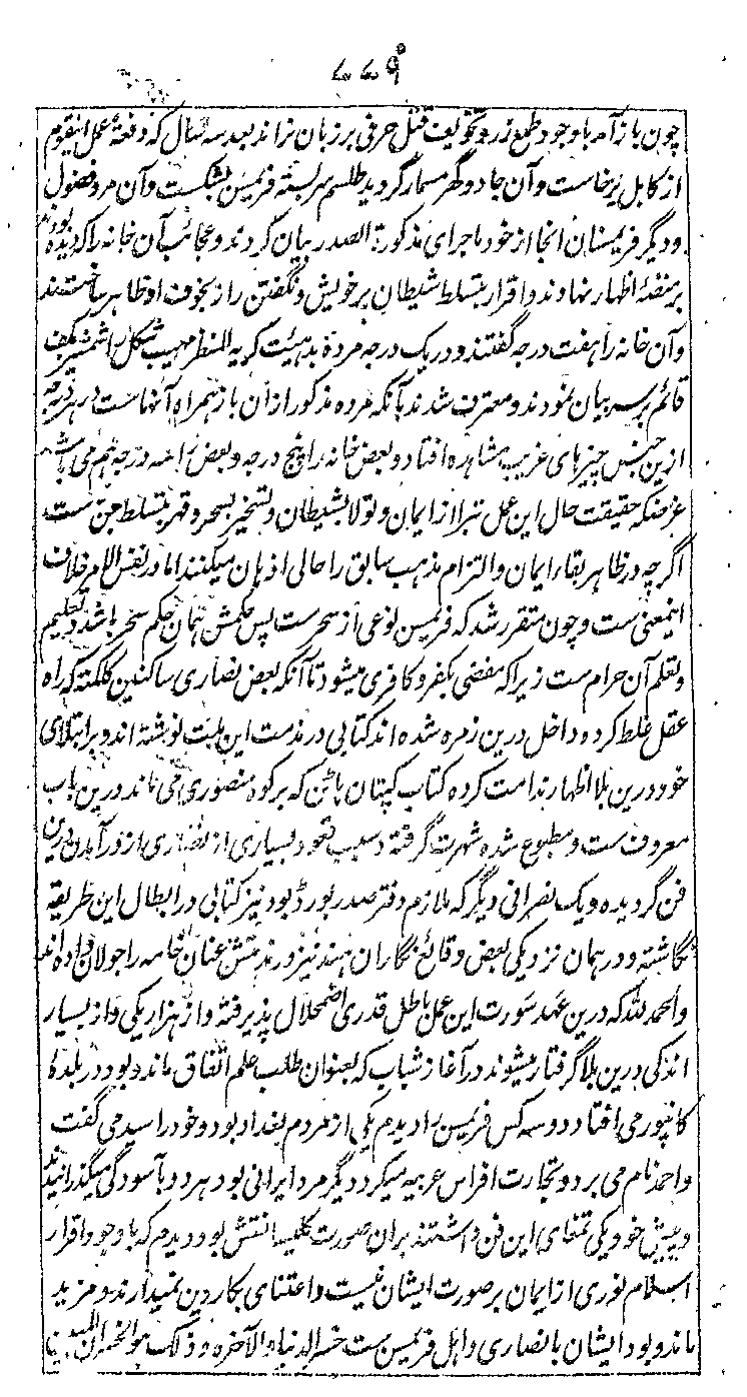 ۷۷۹
چون باز آمد با وجود طمع زر و تخویف قتل حرفی بر زبان نراند بعد سه سال که دفعةً عمل اینقوم
از کابل برخاست و آن جادوگهر مسمار گردید طلسم سربسته فریمسن بشکست و آن مرد فضول
و دیگر فریمسنان آنجا از خود ماجرای مذکورة الصدر بیان کردند و عجائب آن خانه را که دیده بودند
بر منصّهٔ اظهار نهادند و اقرار بتسلط شیطان بر خویش و نگفتن راز بخوف او ظاهر ساختند
و آن خانه را هفت درجه گفتند و در یک درجه مردهٔ بد هیئت کریه المنظر مهیب شکل را شمشیر بکف
قائم بر سر بیان نمودند و معترف شدند بآنکه مرده مذکور از آن باز همراه آنهاست در هر درجه
ازین جنس چیزهای غریب مشاهده افتاد و بعض خانه را پنج درجه و بعض را سه درجه هم می باشد
غرضکه حقیقت حال این عمل تبرا از ایمان و تولا بشیطان و تسخیر بسحر و قهر بتسلط جن ست
اگرچه در ظاهر بقاء ایمان و التزام مذهب سابق را حالی اذهان میکنند اما در نفس الامر خلاف
اینمعنی ست و چون متقرر شد که فریمسن نوعی از سحر ست پس حکمش همان حکم سحر باشد و تعلیم
و تعلم آن حرام ست زیرا که مفضی بکفر و کافری میشود تا آنکه بعض نصاری ساکنین کلکته که راه
عقل غلط کرده داخل درین زمره شده اند کتابی در مذمت این ملت نوشته اند و بر ابتلای
خود درین بلا اظهار ندامت کرده کتاب کپتان پاٹن که بر کوه منصوری می ماند درین باب
معروف ست و مطبوع شده شهرت گرفته و سبب تقعود بسیاری از نصاری از درآمدن درین
فن گردیده و یک نصرانی دیگر که ملازم دفتر صدر بورڈ بود نیز کتابی در ابطال این طریقه
نگاشته و در همان نزدیکی بعض وقائع نگاران هند نیز در مذمتش عنان خامه را جولان داده اند
و الحمد لله که درین عهد سورت این عمل باطل قدری اضمحلال پذیرفته و از هزار یکی و از بسیار
اندکی درین بلا گرفتار میشوند در آغاز شباب که بعنوان طلب علم اتفاق ماند و بود در بلدهٔ
کانپور می افتاد دو سه کس فریمسن را دیدم یکی از مردم بغداد بود و خود را سید می گفت
و احمد نام می برد و تجارت افراس عربیه میکرد دیگر مرد ایرانی بود هر دو بآسودگی میگذرانیدند
و پیش خود یکی تمغای این فن داشتند بر آن صورت کلیسا نقش بود دیدم که با وجود اقرار
اسلام نوری از ایمان بر صورت ایشان نیست و اعتنای بکار دین نمیدارند و مزید
ماند و بود ایشان با نصاری و اهل فریمسن ست خسر الدنیا و الآخره و ذلک هو الخسران المبین